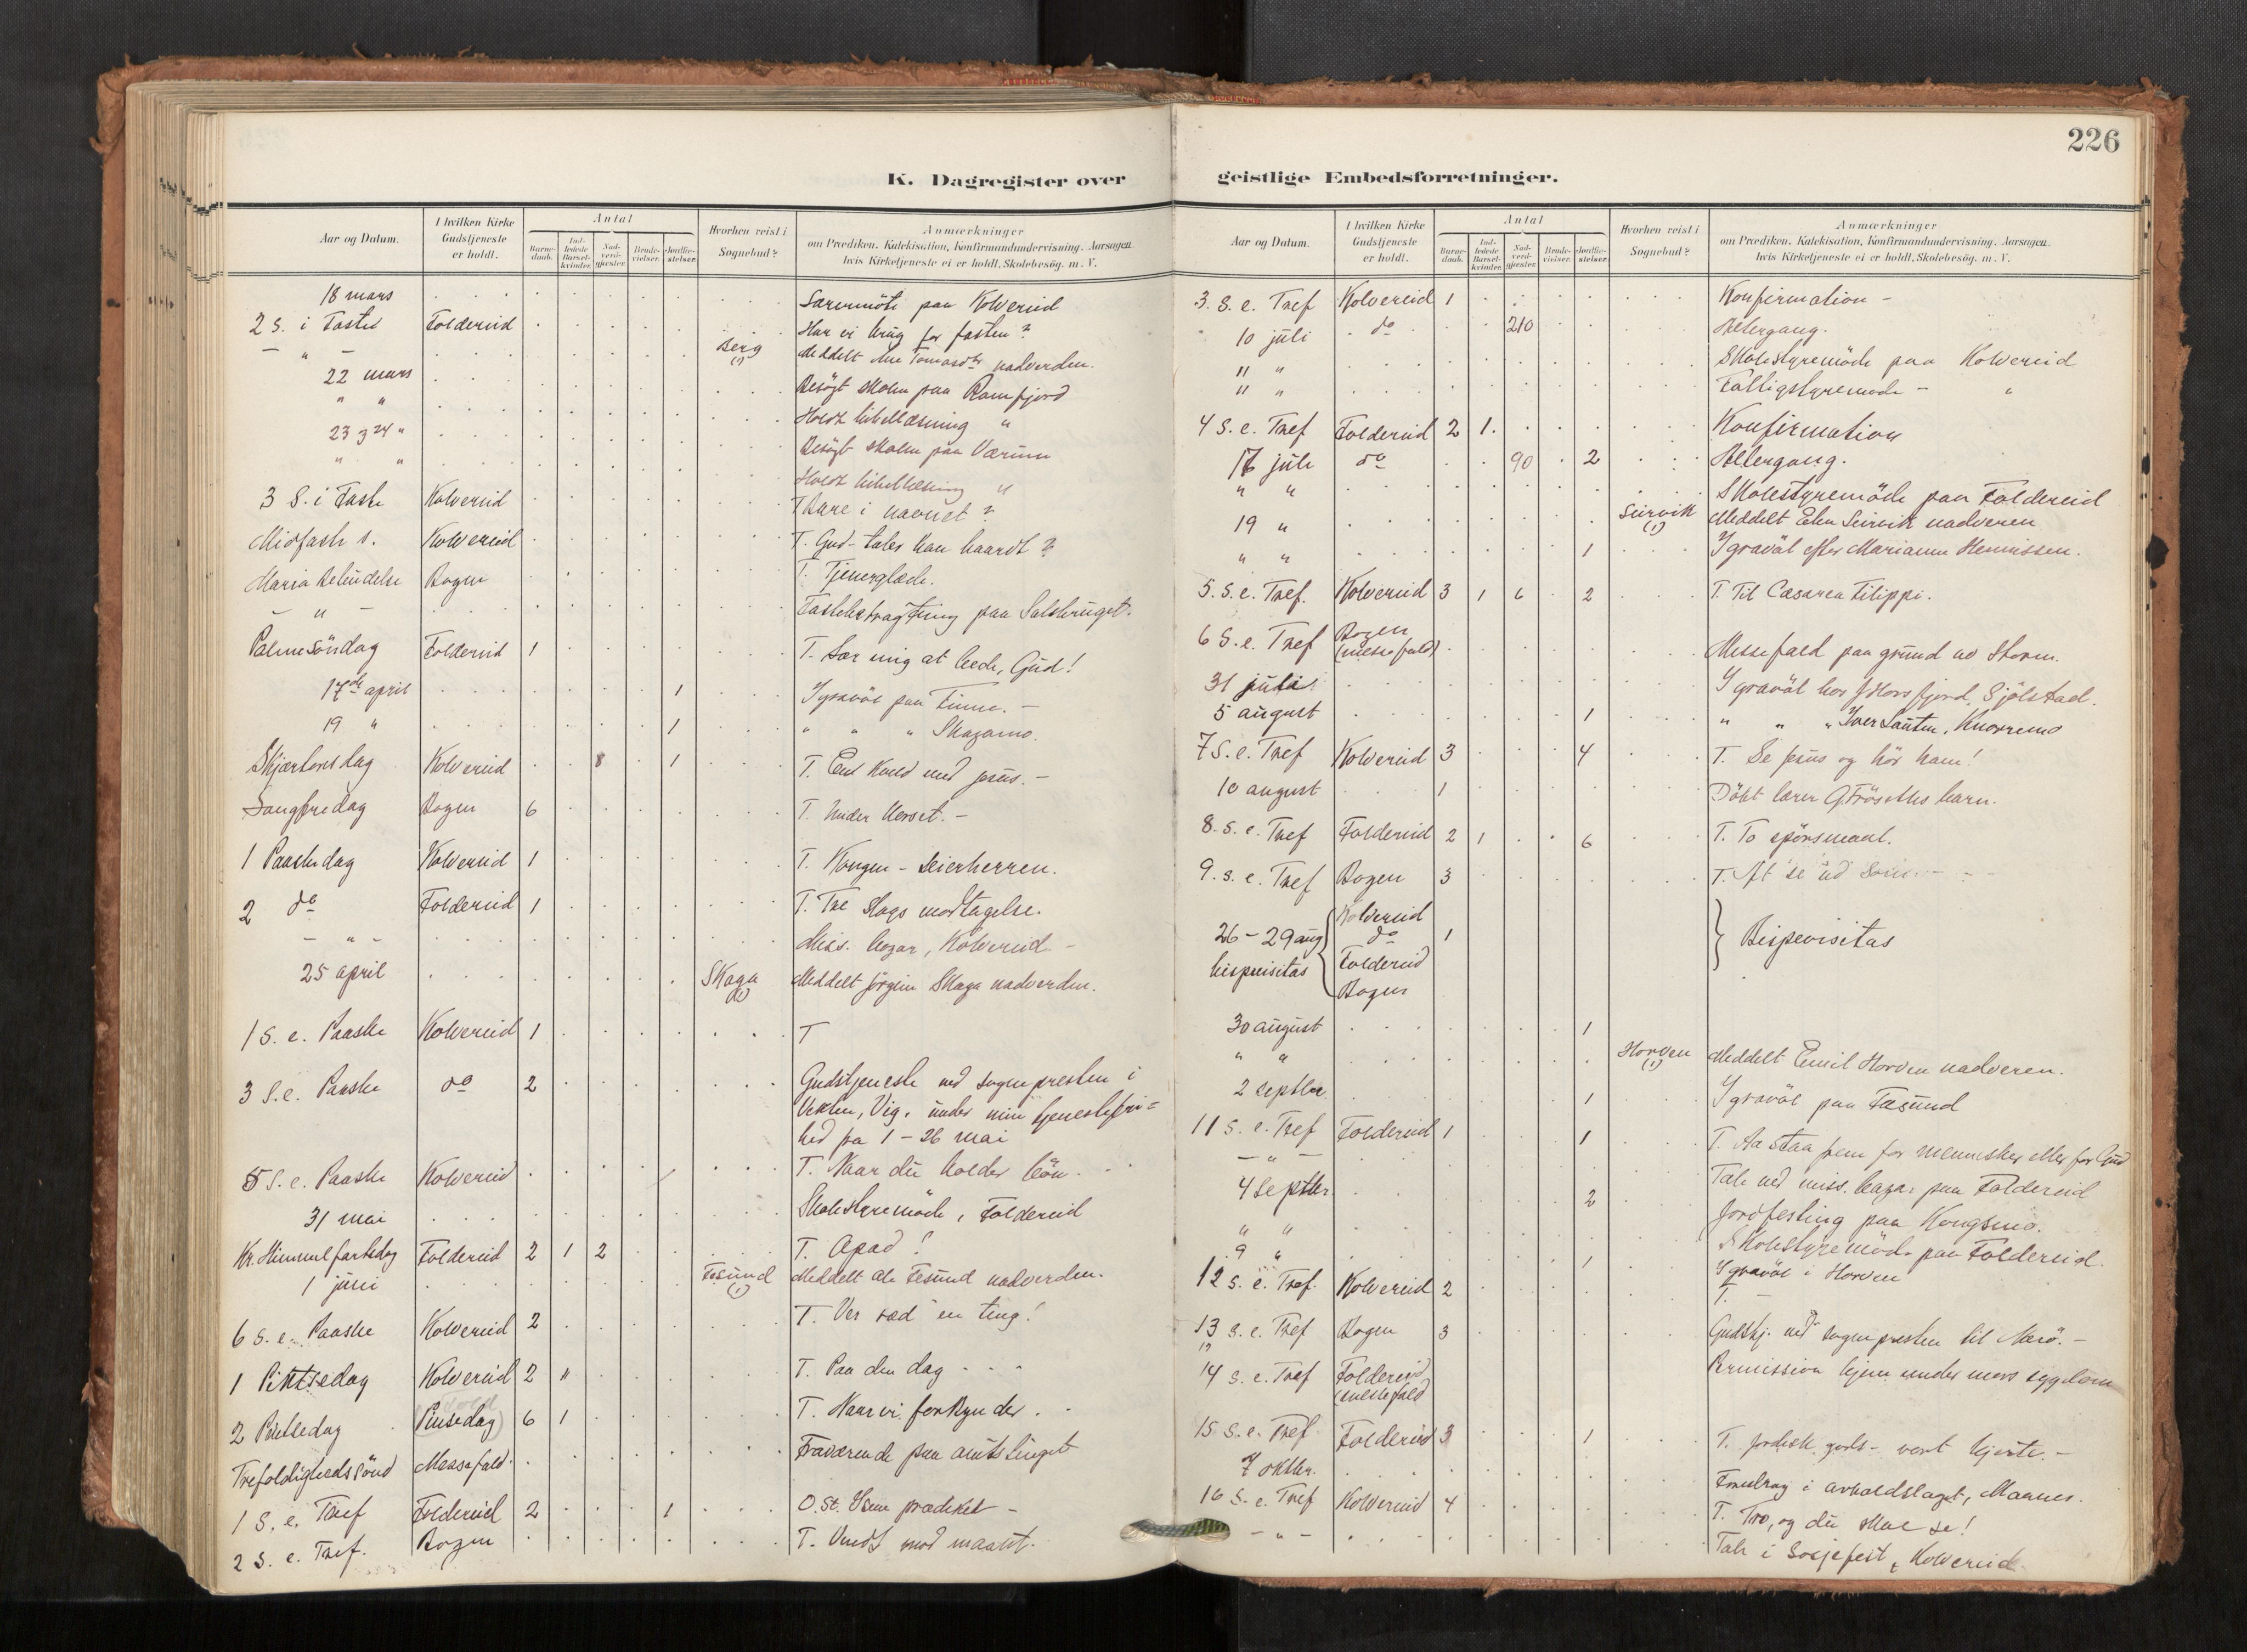 226
K. Dagregister over
Aar og Datum. I hvilken Kirke Gudstjeneste er holdt. Antal Barnedaab. Indledede Barselkvinder. Nadverdgjester. Brudevielser. Jordfæstelser. Hvorhen reist i Sognebud? Anmærkninger om Prædiken, Katekisation, Konfirmandundervisning. Aarsagen hvis Kirketjeneste ei er holdt. Skolebesøg. m. V.
18 mars Lærermöte paa Kolvereid
2 S. i Faste Foldereid Har vi brug for fasten?
– " – Berg (1) Meddelt Ane Tomasdtr nadverden.
22 mars Besögt skolen paa Ramfjord
" " Holdt bibellæsning "
23 & 24 " Besögt skolen paa Værum
" " Holdt bibellæsning "
3 S. i Faste Kolvereid T. Bare i navnet?
Midfaste s. Kolvereid T. Gud – taler han haardt?
Maria Bebudelse Bogen T. Tjenerglæde.
– " – Fastebetragtning paa Salsbruget.
Palmesöndag Foldereid 1 T. Lær mig at bede, Gud!
17de april 1 I gravöl paa Finne. –
19 " 1 " " " Skagamo.
Skjærtorsdag Kolvereid 8 1 T. Een kveld med jesus. –
Langfredag Bogen 6 T. Under korset. –
1 Paaskedag Kolvereid 1 T. Kongen – Seierherren.
2 do Foldereid 1 T. Tre slags modtagelse.
– " – Miss. bazar, Kolvereid –
25 april Skaga (1) Meddelt Jörgine Skaga nadverden.
1 S. e. Paaske Kolvereid 1 T
3 S. e. Paaske do 2 Gudstjeneste ved sognepresten i
Vikten, Vig, under min tjenestefri=
hed fra 1 – 26 mai
5 S. e. Paaske Kolvereid T. Naar du holder bön
31 mai Skolestyremöde, Foldereid
Kr. Himmelfartsdag Foldereid 2 1 2 T. Opad!
1 juni Fesund (1) Meddelt Ole Fesund nadverden.
6 S. e. Paaske Kolvereid 2 T. Ver ræd en ting!
1 Pintsedag Kolvereid 2 " T. Paa den dag . . .
2 Pintsedag Pinsedag) 6 1 T. Naar vi forkynder . .
Trefoldighedssönd Messefald. Fraværende paa amtstinget
1 S. e. Tref Foldereid 2 1 O. St. prædiket –
2 S. e. Tref. Bogen T. Vendt mod maalet.
geistlige Embedsforretninger.
Aar og Datum. I hvilken Kirke Gudstjeneste er holdt. Antal Barnedaab. Indledede Barselkvinder. Nadverdgjester. Brudevielser. Jordfæstelser. Hvorhen reist i Sognebud? Anmærkninger om Prædiken, Katekisation, Konfirmandundervisning. Aarsagen hvis Kirketjeneste ei er holdt. Skolebesøg. m. V.
3. S. e. Tref Kolvereid 1 Konfirmation –
10 juli do 210 Altergang.
11 " Skolestyremöde paa Kolvereid
11 " Fattigstyremöde – "
4 S. e. Tref Foldereid 2 1. Konfirmation
17 juli do 90 2 Altergang.
" " Skolestyremöde paa Foldereid
19 " Seirvik (1) Meddelt Elen Seirvik nadveren
" " 1 I gravöl efter Marianne Henrissen.
5. S. e. Tref. Kolvereid 3 1 6 2 T. Til Cæsarea Filippi.
6 S. e. Tref Bogen (messefald) Messefald paa grund av storm.
31 juli I gravöl hos J Horsfjord, Sjölstad.
5 august 1 " " " Iver Lauten, Knorremo
7 S. e. Tref Kolvereid 3 4 T. Se jesus og hör ham!
10 august 1 Döbt lærer G Fröseths barn.
8. S. e. Tref Foldereid 2 1 6 T. To spörsmaal.
9. S. e. Tref Bogen 3 T. At se ud som – – –
26 – 29 aug Kolvereid
do 1 Bispevisitas
bispevisitas Foldereid
Bogen
30 august 1
" " Horven (1) Meddelt Emil Horven nadveren.
2 septbr 1 I gravöl paa Fæsund
11 S. e. Tref Foldereid 1 1 T. Aa staa frem for mennesker eller for Gud
– " – Tale ved miss. bazar paa Foldereid
4 septbr. 2 Jordfesting paa Kongsmo.
" " Skolestyremöde paa Foldereid.
9 " 1 I gravöl i Horven
12 s. e. Tref. Kolvereid 2 T. –
13 s. e. Tref Bogen 3 Gudstj. ved sognepresten til Nærö. –
14 s. e. Tref Foldereid (messefald) Permission hjem under mors sygdom
15 S. e. Tref Foldereid 3 1 T. Jordisk gods – vort hjerte. –
7 oktbr. Foredrag i avholdslaget, Marnes.
16 S. e. Tref Kolvereid 4 T. Tro, og du skal se!
– " – Tale i Soljefest, Kolvereid